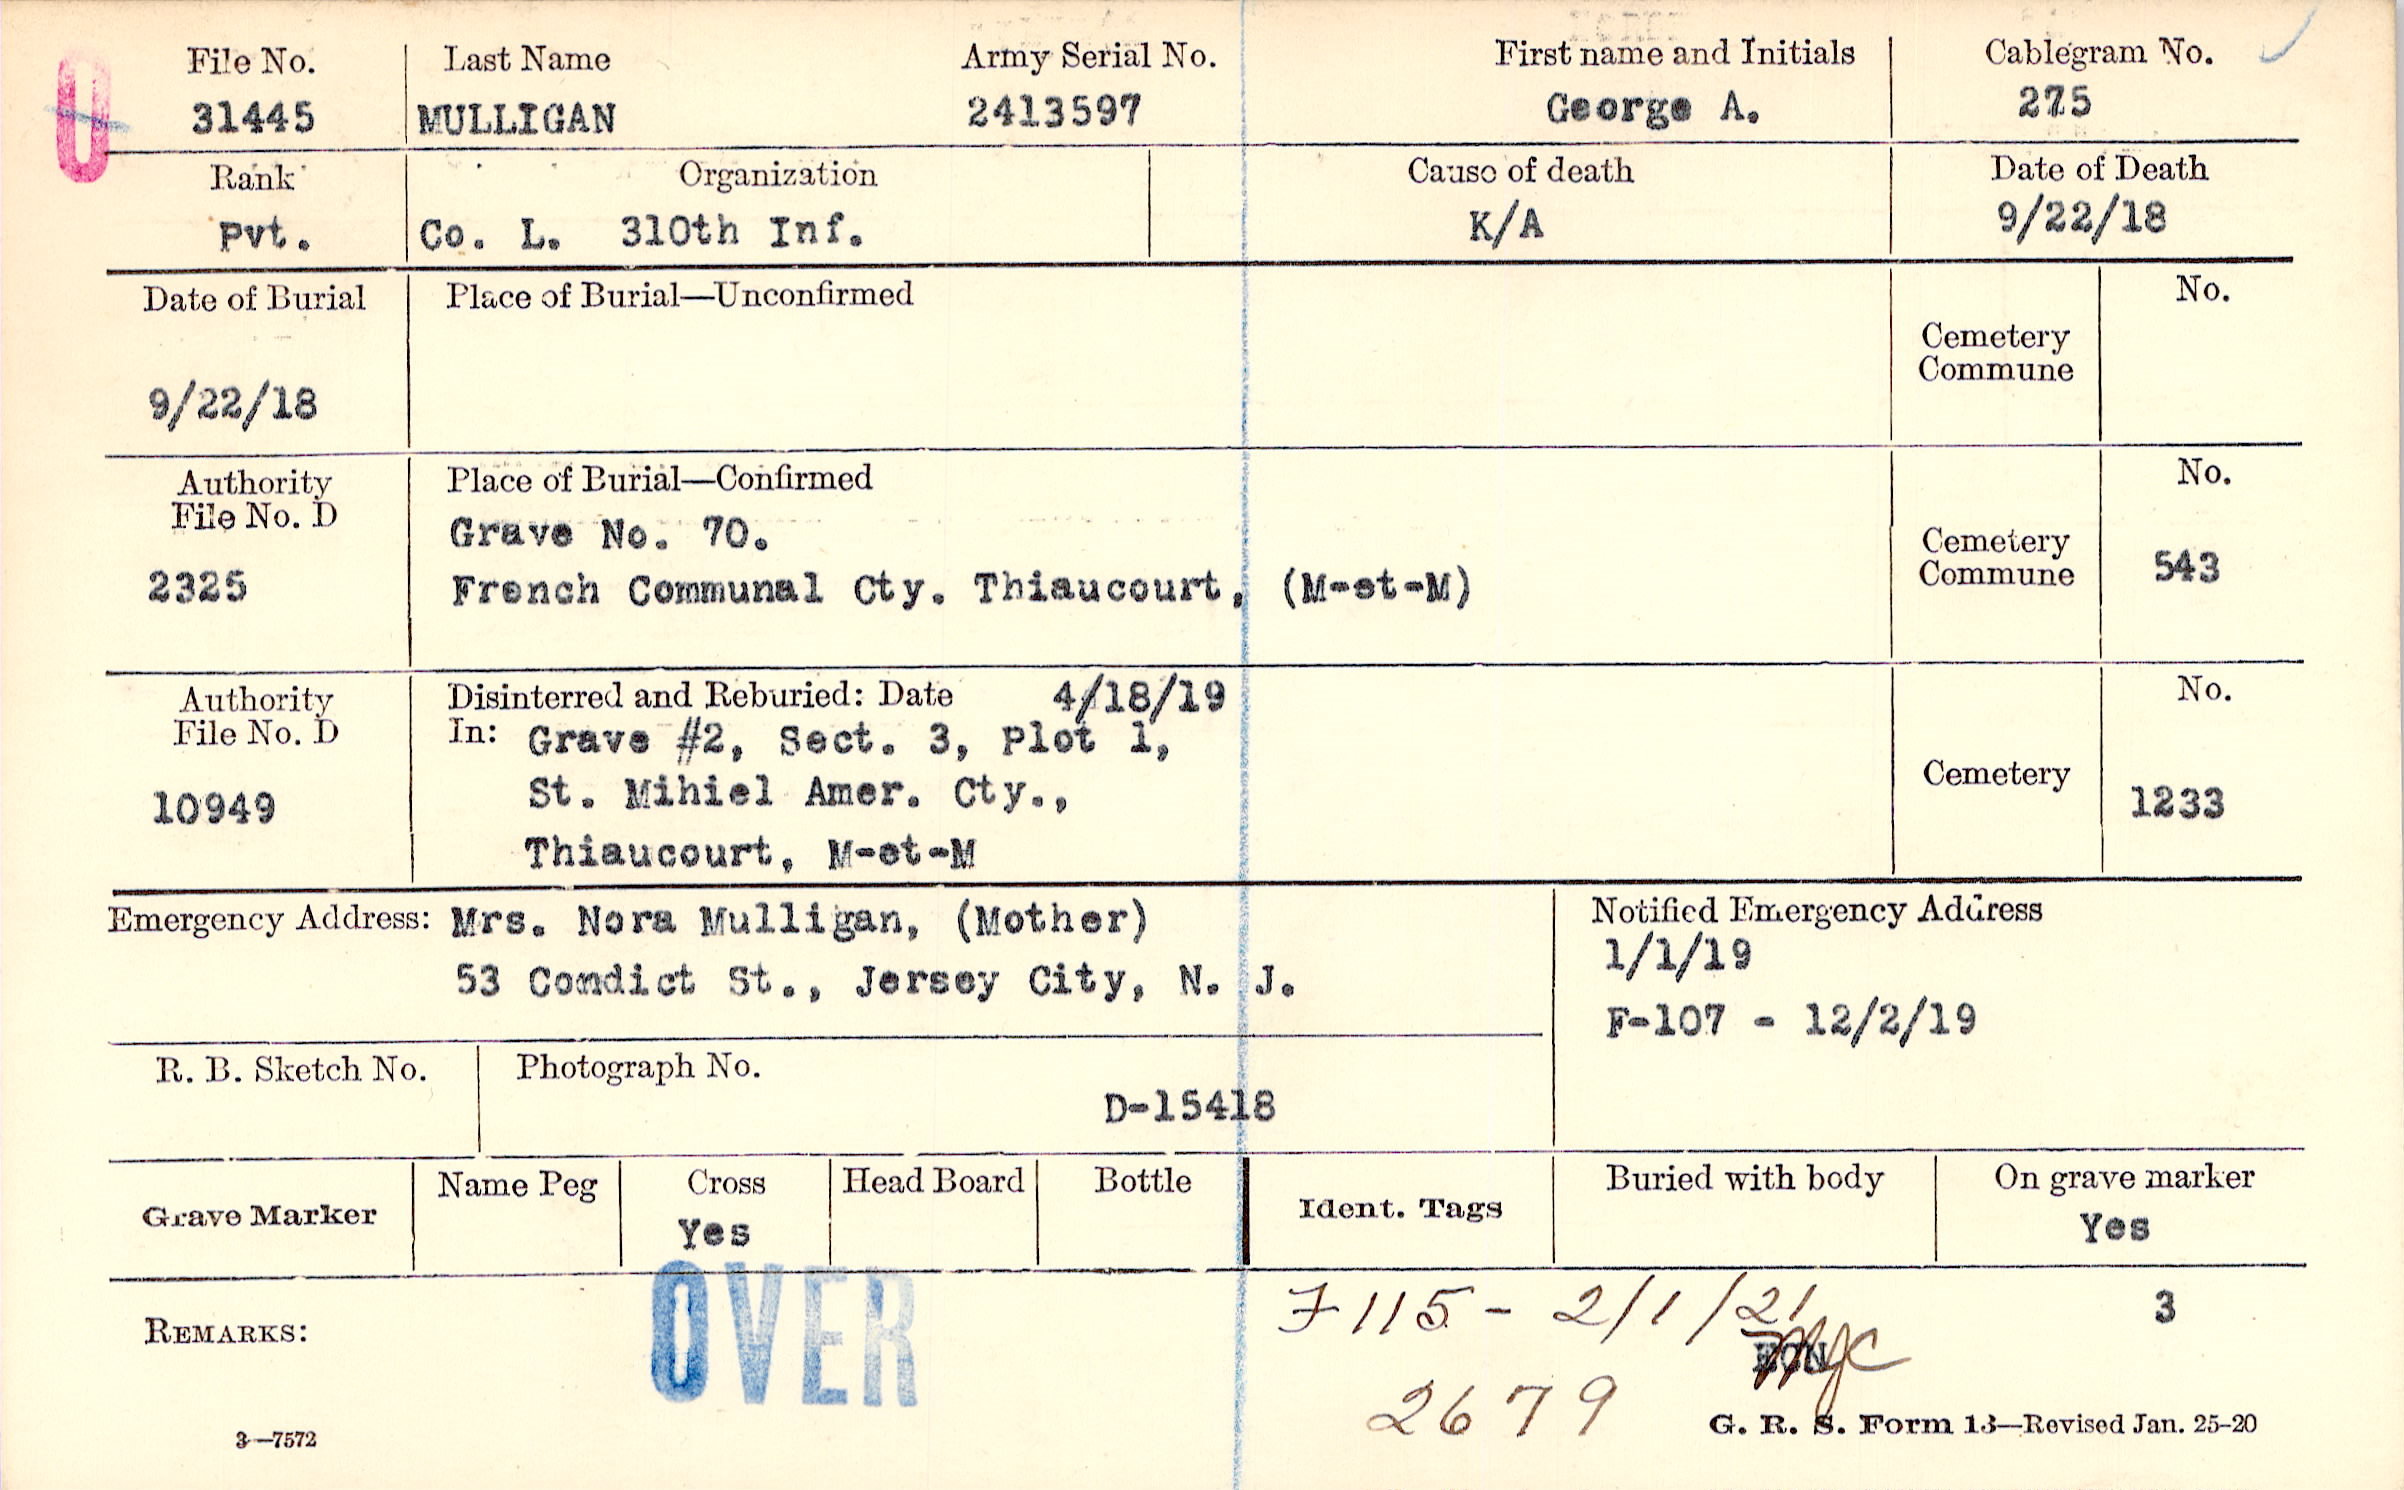 0
File No.
31445
Last Name
MULLIGAN
Army Serial No.
2413597
First name and Initials
George A.
Cablegram No.
275
Rank
Pvt.
Organization
Co. L. 310th Inf.
Cause of death
K/A
Date of Death
9/22/18
Date of Burial
9/22/18
Place of Burial—Unconfirmed
Cemetery
Commune
No.
Authority
File No. D
2325
Place of Burial—Confirmed
Grave No. 70.
French Communal Cty. Thiaucourt, (M-et-M)
Cemetery
Commune
No.
543
Authority
File No. D
10949
Disinterred and Reburied: Date 4/18/19
In: Grave #2, Sect. 3, Plot 1,
St. Mihiel Amer. Cty.,
Thiaucourt, M-et-M
Cemetery
No.
1233
Emergency Address: Mrs. Nora Mulligan, (Mother)
53 Condict St., Jersey City, N. J.
Notified Emergency Address
1/1/19
F-107 - 12/2/19
R. B. Sketch No.
Photograph No.
D-15418
Grave Marker
Name Peg
Cross
Yes
Head Board
Bottle
Ident. Tags
Buried with body
On grave marker
Yes
REMARKS:
OVER
F115 - 2/1/21
3
2679
3—7572
G. R. S. Form 13—Revised Jan. 25-20